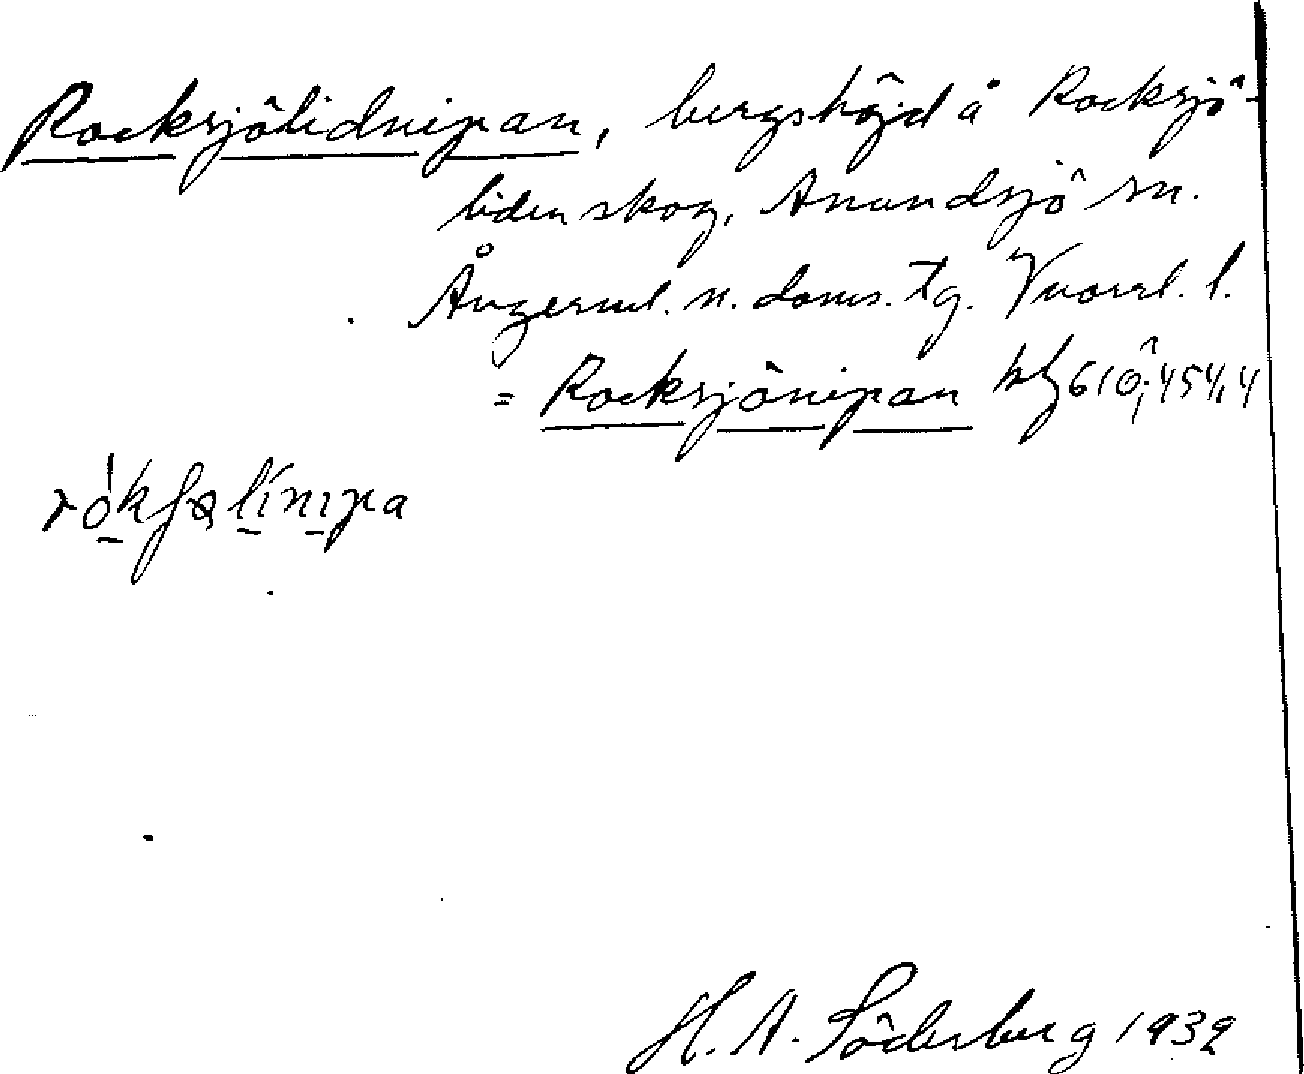 Rocksjölidnipan, bergshöjd å Rocksjö-
liden skog, Anundsjö sn.
Ångerml. n. doms. tg. Vnorrl. l.
= Rocksjönipan kbl 610; 454,4
rókʃølínipa
H. A. Söderberg 1932